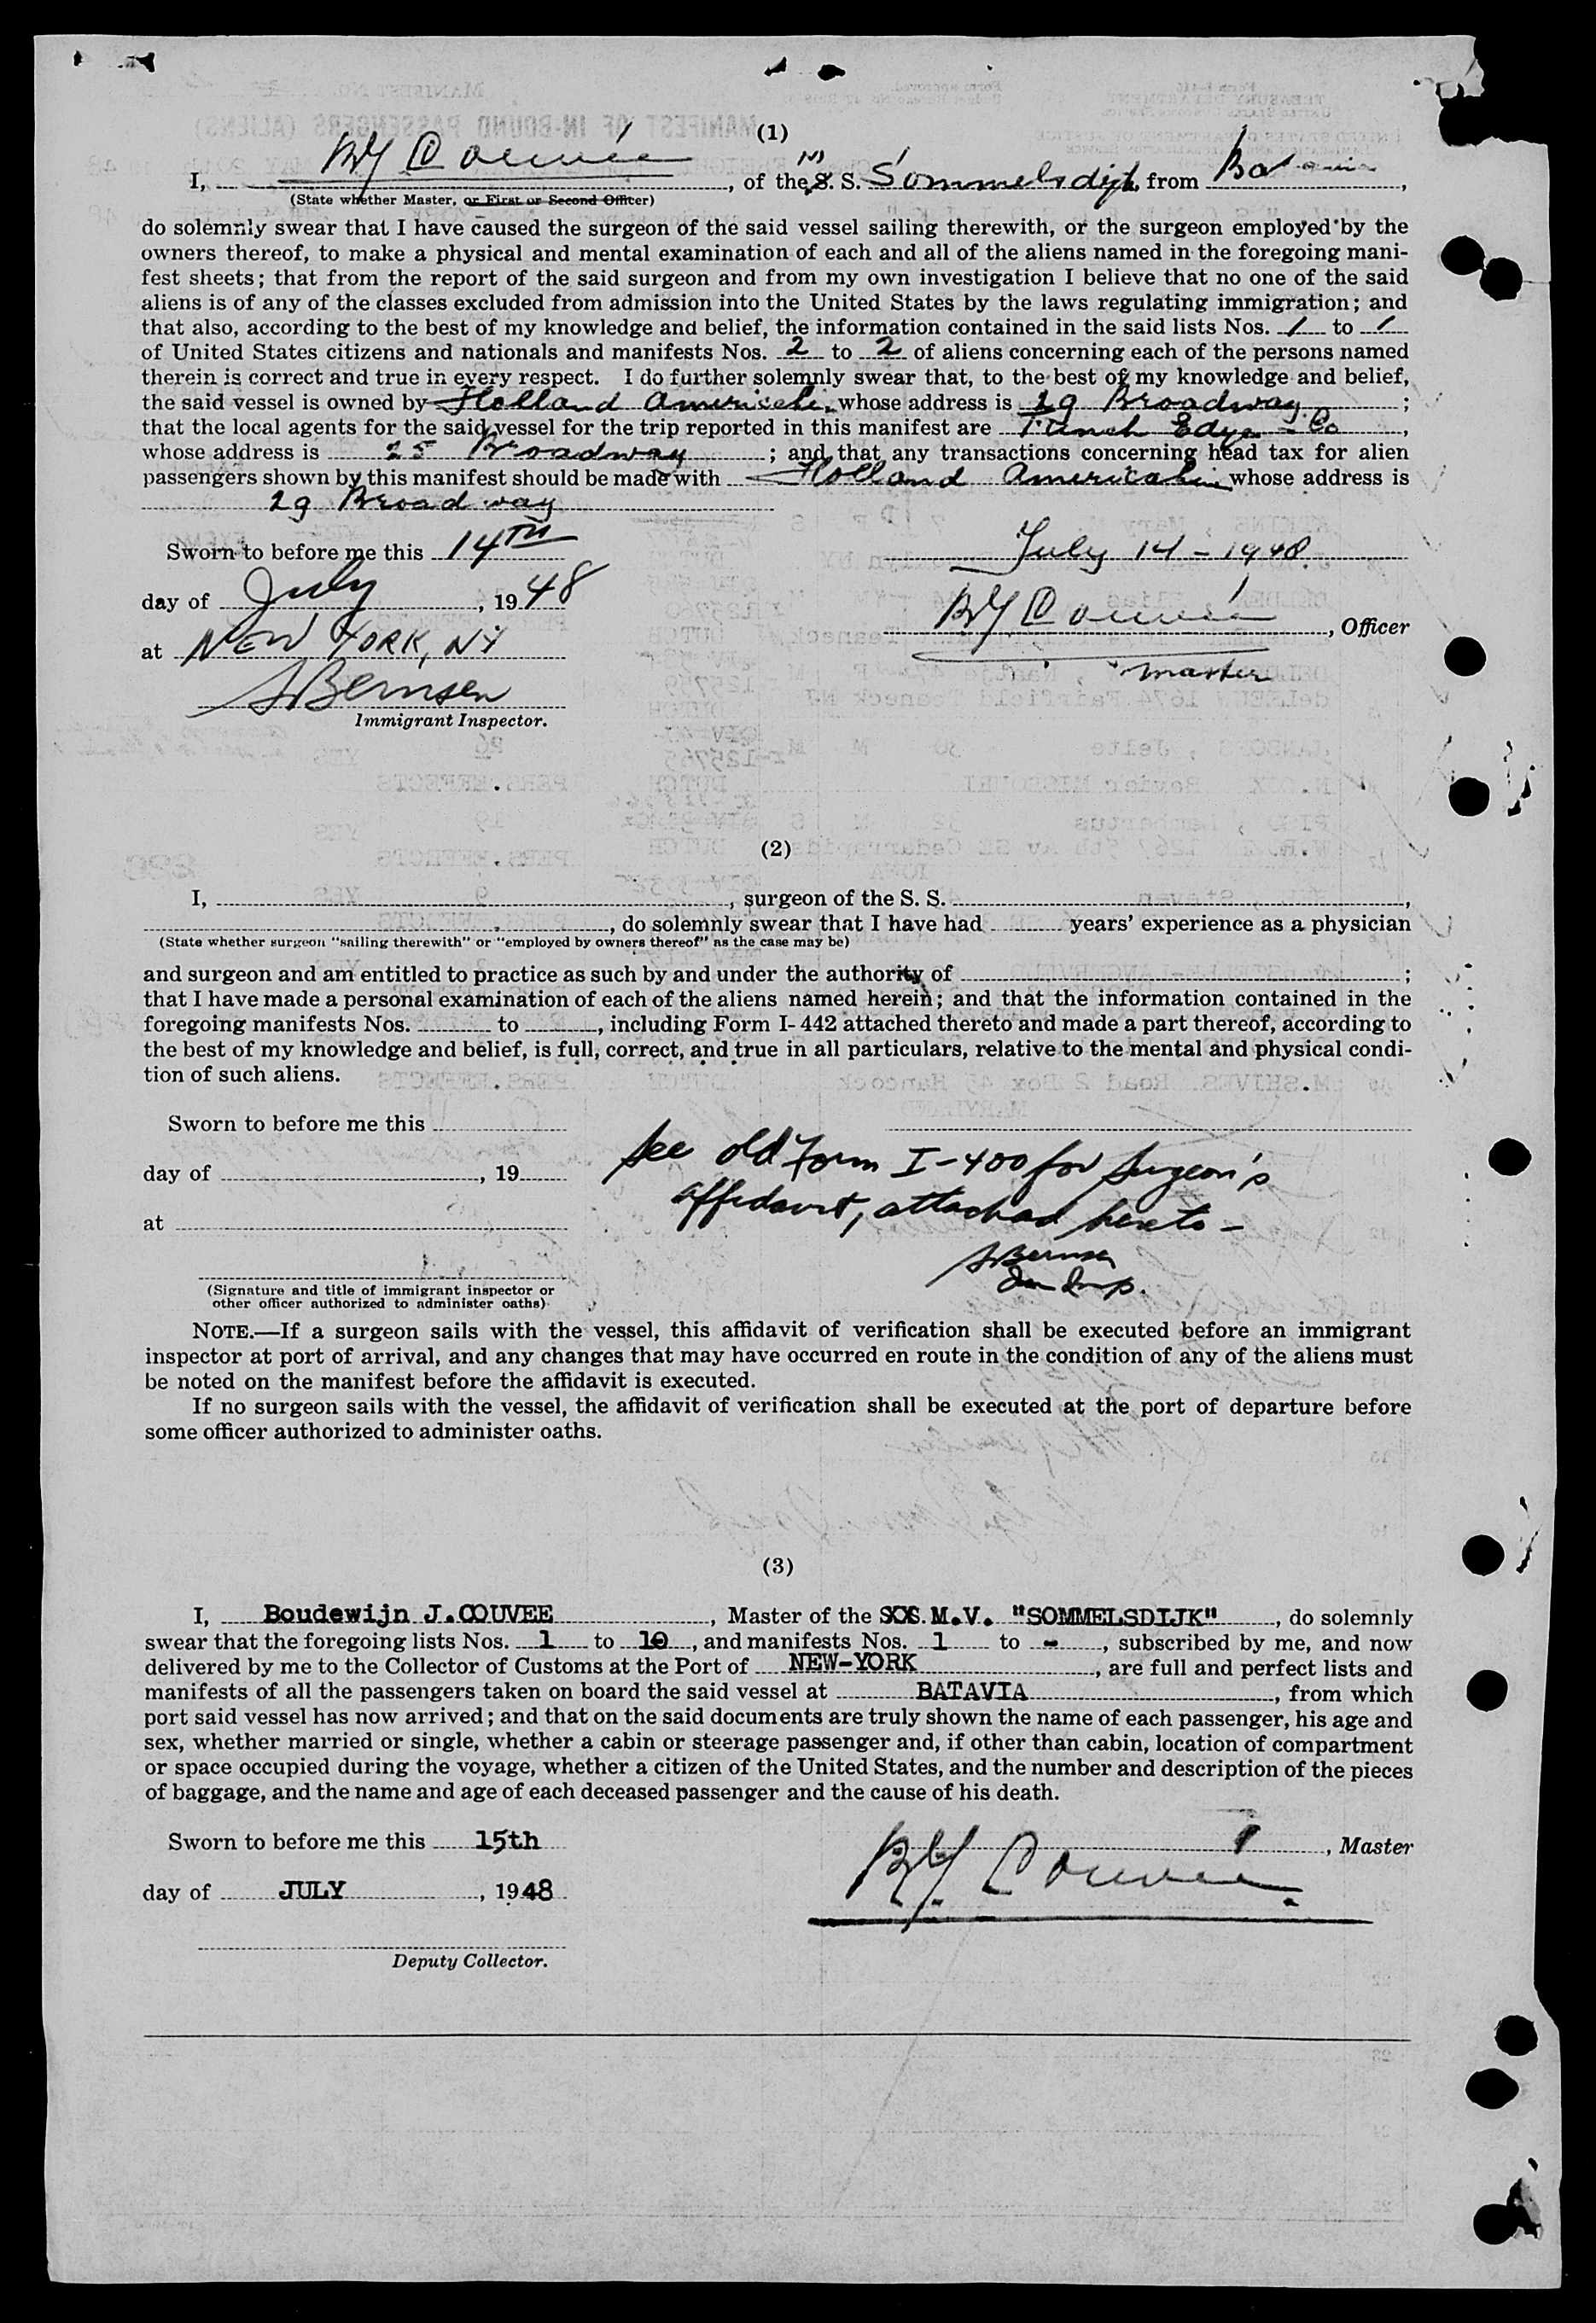 (1)
I, BJ Couvée, of the M S. S. Sommelsdijk, from Batavia,
(State whether Master, or First or Second Officer)
do solemnly swear that I have caused the surgeon of the said vessel sailing therewith, or the surgeon employed by the
owners thereof, to make a physical and mental examination of each and all of the aliens named in the foregoing mani-
fest sheets; that from the report of the said surgeon and from my own investigation I believe that no one of the said
aliens is of any of the classes excluded from admission into the United States by the laws regulating immigration; and
that also, according to the best of my knowledge and belief, the information contained in the said lists Nos. 1 to 1
of United States citizens and nationals and manifests Nos. 2 to 2 of aliens concerning each of the persons named
therein is correct and true in every respect. I do further solemnly swear that, to the best of my knowledge and belief,
the said vessel is owned by Holland America, whose address is 29 Broadway;
that the local agents for the said vessel for the trip reported in this manifest are Funch Edye & Co,
whose address is 25 Broadway; and that any transactions concerning head tax for alien
passengers shown by this manifest should be made with Holland America whose address is
29 Broadway
Sworn to before me this 14TH July 14-1948
day of July, 1948
BJ Couvée, Officer
at NEW YORK, NY
master
S Bernsen
Immigrant Inspector.
(2)
I, , surgeon of the S. S. ,
, do solemnly swear that I have had years' experience as a physician
(State whether surgeon "sailing therewith" or "employed by owners thereof" as the case may be)
and surgeon and am entitled to practice as such by and under the authority of ;
that I have made a personal examination of each of the aliens named herein; and that the information contained in the
foregoing manifests Nos. to , including Form I-442 attached thereto and made a part thereof, according to
the best of my knowledge and belief, is full, correct, and true in all particulars, relative to the mental and physical condi-
tion of such aliens.
Sworn to before me this
See old Form I-400 for surgeon's
day of , 19
affidavit, attached hereto -
at
S Bernsen
Imm Insp.
(Signature and title of immigrant inspector or
other officer authorized to administer oaths)
NOTE.—If a surgeon sails with the vessel, this affidavit of verification shall be executed before an immigrant
inspector at port of arrival, and any changes that may have occurred en route in the condition of any of the aliens must
be noted on the manifest before the affidavit is executed.
If no surgeon sails with the vessel, the affidavit of verification shall be executed at the port of departure before
some officer authorized to administer oaths.
(3)
I, Boudewijn J.COUVEE, Master of the S.S. M.V. "SOMMELSDIJK", do solemnly
swear that the foregoing lists Nos. 1 to 10, and manifests Nos. 1 to -, subscribed by me, and now
delivered by me to the Collector of Customs at the Port of NEW-YORK, are full and perfect lists and
manifests of all the passengers taken on board the said vessel at BATAVIA, from which
port said vessel has now arrived; and that on the said documents are truly shown the name of each passenger, his age and
sex, whether married or single, whether a cabin or steerage passenger and, if other than cabin, location of compartment
or space occupied during the voyage, whether a citizen of the United States, and the number and description of the pieces
of baggage, and the name and age of each deceased passenger and the cause of his death.
Sworn to before me this 15th
BJ. Couvée., Master
day of JULY, 1948
Deputy Collector.